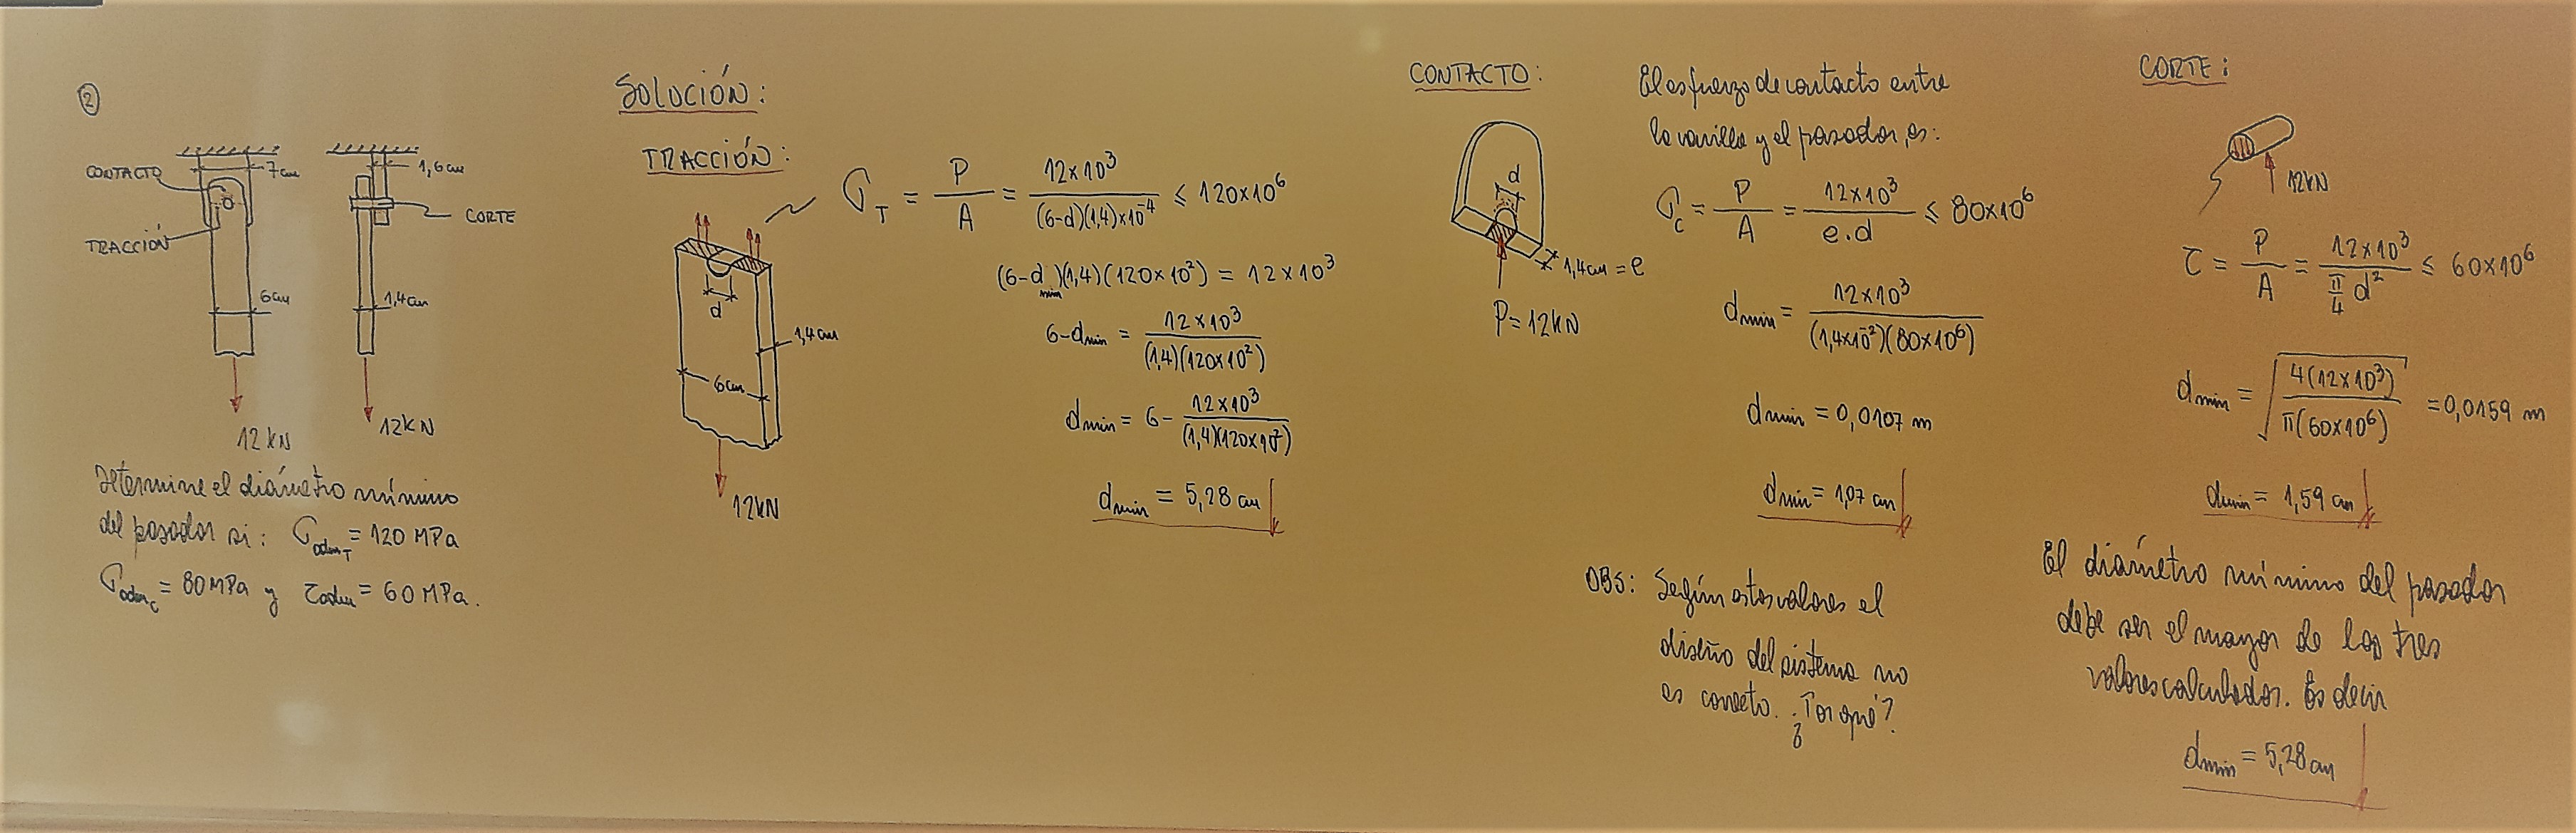 ②
CONTACTO
7cm
1,6cm
CORTE
TRACCIÓN
6cm
1,4cm
12 kN
12kN
Determine el diámetro mínimo
del pasador si: σadmT = 120 MPa
σadmC = 80 MPa y τadm = 60 MPa.
SOLUCIÓN:
TRACCIÓN:
σT = P / A = 12x10³ / (6-d)(1,4)x10⁻⁴ ≤ 120x10⁶
(6-dmin)(1,4)(120x10²) = 12x10³
6-dmin = 12x10³ / (1,4)(120x10²)
dmin = 6- 12x10³ / (1,4)(120x10²)
dmin = 5,28 cm
d
1,4cm
6cm
12kN
CONTACTO:
d
1,4cm = e
P=12kN
El esfuerzo de contacto entre
la varilla y el pasador, es:
σc = P / A = 12x10³ / e.d ≤ 80x10⁶
dmin = 12x10³ / (1,4x10⁻²)(80x10⁶)
dmin = 0,0107 m
dmin = 1,07 cm
OBS: Según estos valores el
diseño del sistema no
es correcto. ¿Por qué?
CORTE:
12kN
τ = P / A = 12x10³ / π/4 d² ≤ 60x10⁶
dmin = √ 4(12x10³) / π(60x10⁶) = 0,0159 m
dmin = 1,59 cm
El diámetro mínimo del pasador
debe ser el mayor de los tres
valores calculados. Es decir
dmin = 5,28 cm